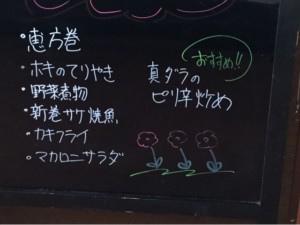 ・恵方巻
・ホキのてりやき
・野菜煮物
・新巻サケ焼魚
・カキフライ
・マカロニサラダ
おすすめ!!
真ダラの
ピリ辛炒め